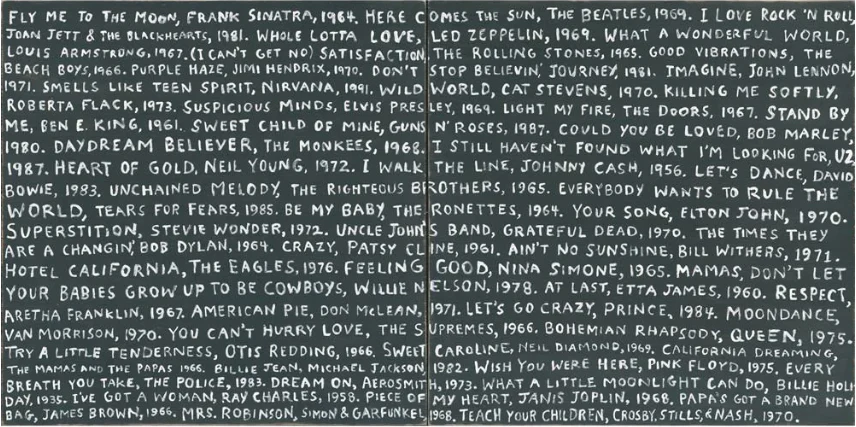 FLY ME TO THE MOON, FRANK SINATRA, 1964. HERE COMES THE SUN, THE BEATLES, 1969. I LOVE ROCK 'N ROLL,
JOAN JETT & THE BLACKHEARTS, 1981. WHOLE LOTTA LOVE, LED ZEPPELIN, 1969. WHAT A WONDERFUL WORLD,
LOUIS ARMSTRONG, 1967. (I CAN'T GET NO) SATISFACTION, THE ROLLING STONES, 1965. GOOD VIBRATIONS, THE
BEACH BOYS, 1966. PURPLE HAZE, JIMI HENDRIX, 1970. DON'T STOP BELIEVIN', JOURNEY, 1981. IMAGINE, JOHN LENNON,
1971. SMELLS LIKE TEEN SPIRIT, NIRVANA, 1991. WILD WORLD, CAT STEVENS, 1970. KILLING ME SOFTLY,
ROBERTA FLACK, 1973. SUSPICIOUS MINDS, ELVIS PRESLEY, 1969. LIGHT MY FIRE, THE DOORS, 1967. STAND BY
ME, BEN E. KING, 1961. SWEET CHILD OF MINE, GUNS N' ROSES, 1987. COULD YOU BE LOVED, BOB MARLEY,
1980. DAYDREAM BELIEVER, THE MONKEES, 1968. I STILL HAVEN'T FOUND WHAT I'M LOOKING FOR, U2,
1987. HEART OF GOLD, NEIL YOUNG, 1972. I WALK THE LINE, JOHNNY CASH, 1956. LET'S DANCE, DAVID
BOWIE, 1983. UNCHAINED MELODY, THE RIGHTEOUS BROTHERS, 1965. EVERYBODY WANTS TO RULE THE
WORLD, TEARS FOR FEARS, 1985. BE MY BABY, THE RONETTES, 1964. YOUR SONG, ELTON JOHN, 1970.
SUPERSTITION, STEVIE WONDER, 1972. UNCLE JOHN'S BAND, GRATEFUL DEAD, 1970. THE TIMES THEY
ARE A CHANGIN', BOB DYLAN, 1964. CRAZY, PATSY CLINE, 1961. AIN'T NO SUNSHINE, BILL WITHERS, 1971.
HOTEL CALIFORNIA, THE EAGLES, 1976. FEELING GOOD, NINA SIMONE, 1965. MAMAS, DON'T LET
YOUR BABIES GROW UP TO BE COWBOYS, WILLIE NELSON, 1978. AT LAST, ETTA JAMES, 1960. RESPECT,
ARETHA FRANKLIN, 1967. AMERICAN PIE, DON McLEAN, 1971. LET'S GO CRAZY, PRINCE, 1984. MOONDANCE,
VAN MORRISON, 1970. YOU CAN'T HURRY LOVE, THE SUPREMES, 1966. BOHEMIAN RHAPSODY, QUEEN, 1975.
TRY A LITTLE TENDERNESS, OTIS REDDING, 1966. SWEET CAROLINE, NEIL DIAMOND, 1969. CALIFORNIA DREAMING,
THE MAMAS AND THE PAPAS 1966. BILLIE JEAN, MICHAEL JACKSON, 1982. WISH YOU WERE HERE, PINK FLOYD, 1975. EVERY
BREATH YOU TAKE, THE POLICE, 1983. DREAM ON, AEROSMITH, 1973. WHAT A LITTLE MOONLIGHT CAN DO, BILLIE HOLI
DAY, 1935. I'VE GOT A WOMAN, RAY CHARLES, 1958. PIECE OF MY HEART, JANIS JOPLIN, 1968. PAPA'S GOT A BRAND NEW
BAG, JAMES BROWN, 1966. MRS. ROBINSON, SIMON & GARFUNKEL, 1968. TEACH YOUR CHILDREN, CROSBY, STILLS, & NASH, 1970.